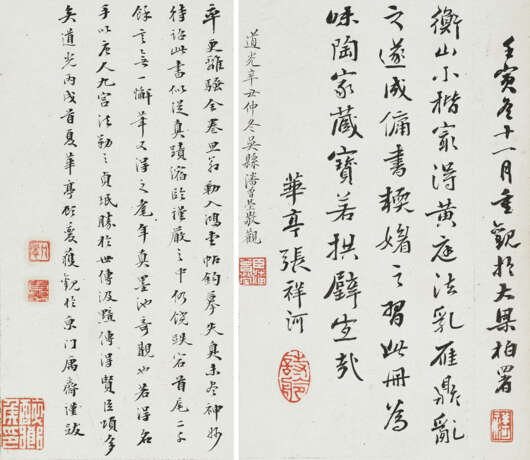 壬寅冬十一月重觀於大梁柏署
衡山小楷最得黃庭法乳雁鼎亂
之遂成傭書輭媚之習此冊為
味陶家藏寶若拱璧生哉
華亭張祥河
道光辛丑仲冬吳縣潘曾瑩敬觀
率更離騷全卷思翁勒入鴻堂帖鉤摹失真未盡神妙
待詔此書似從真蹟縮臨謹嚴之中仍饒跌宕首尾二千
餘言無一懈筆又得之耄年真墨池奇觀也若得名
手以唐人九宮法勒之貞珉勝於世傳汲黯傳得賢臣頌多
矣道光丙戌首夏華亭 獲觀於京門寓齋謹跋